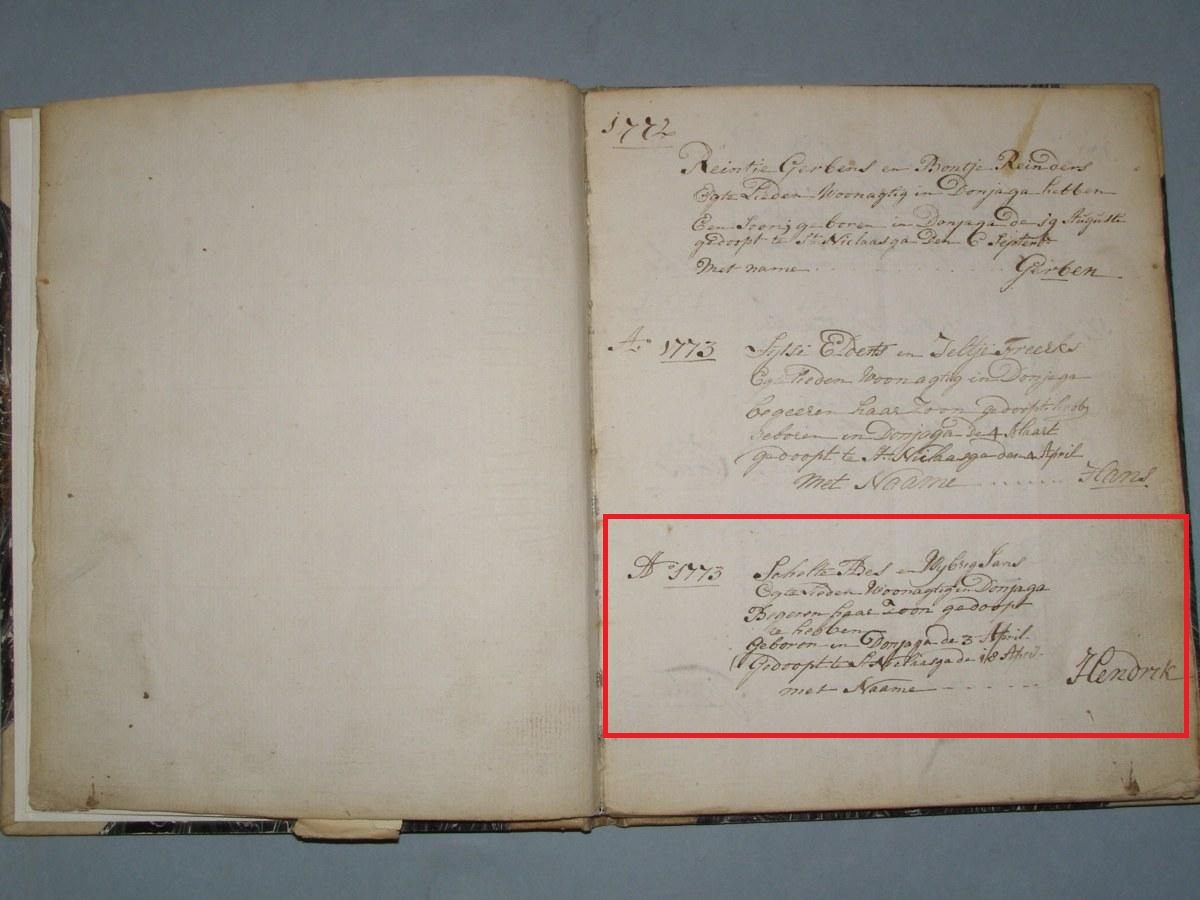 1772
Reintje Gerbens en Bontje Reinders
Egte Lieden Woonagtig in Donjaga hebben
Een Soon; geboren in Donjaga de 19 Auguste
gedoopt te St. Niclaasga den 6 Septembr
Met name . . . . . . . . . . Gerben
Ao 1773 Elderts en Jeltje Freerks
Egte lieden Woonagtig in Donjaga
begeeren haar Zoon gedoopt
Geboren in Donjaga de 4 Maart
gedoopt te St. Niclaasga den 4 April
Met Naame . . . . . . Hans.
Ao 1773 Scholte Abes en Wybrig Jans
Egte Lieden Woonagtig in Donjaga
Begeren haar Zoon gedoopt
te hebben
Geboren in Donjaga de 3 April
Gedoopt te St Niclaasga de 18 April
met Naame . . . . . . Hendrik